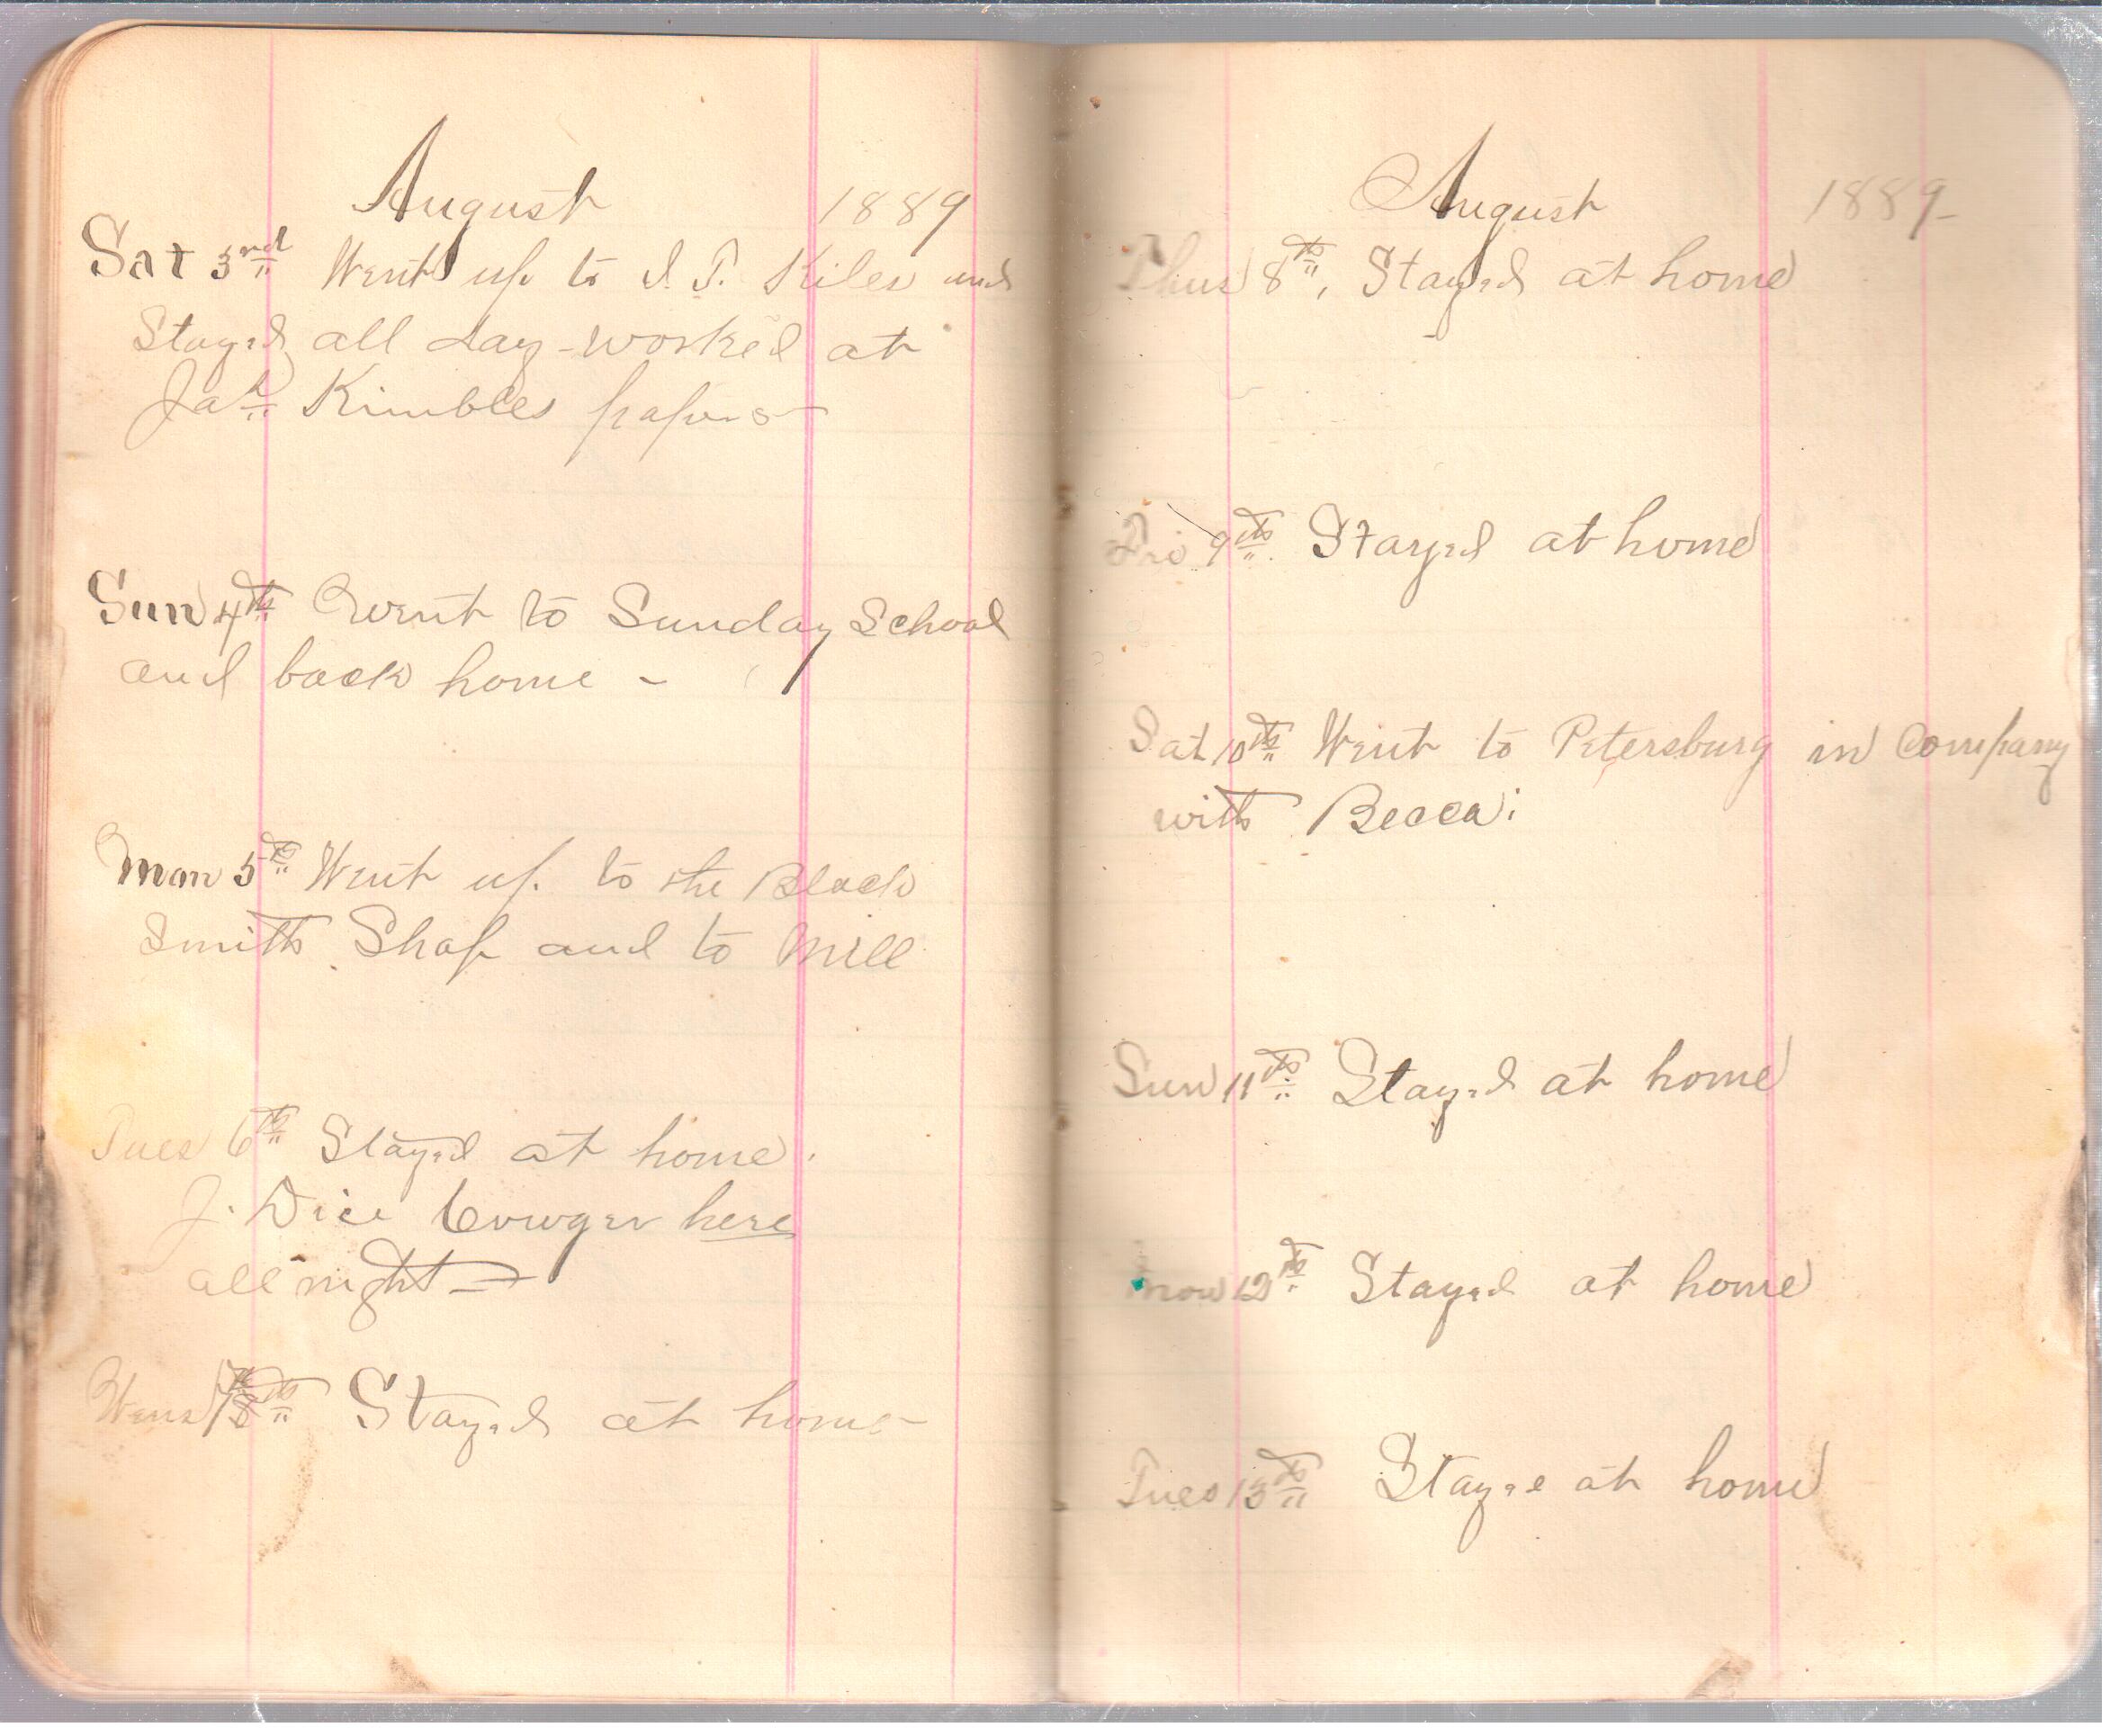 August 1889
Sat 3rd Went up to I. T. Kiles and
Stayed all day - worked at
Jah Kimbles papers
Sun 4th Went to Sunday School
and back home -
Mon 5th Went up to the Black
Smith Shop and to Mill
Tues 6th Stayed at home.
J. Dice Cowger here
all night -
Wens 7th Stayed at home
August 1889-
Thus 8th, Stayed at home
Fri 9th Stayed at home
Sat 10th Went to Petersburg in Company
with Becca:
Sun 11th Stayed at home
Mon 12th Stayed at home
Tues 13th Stayed at home